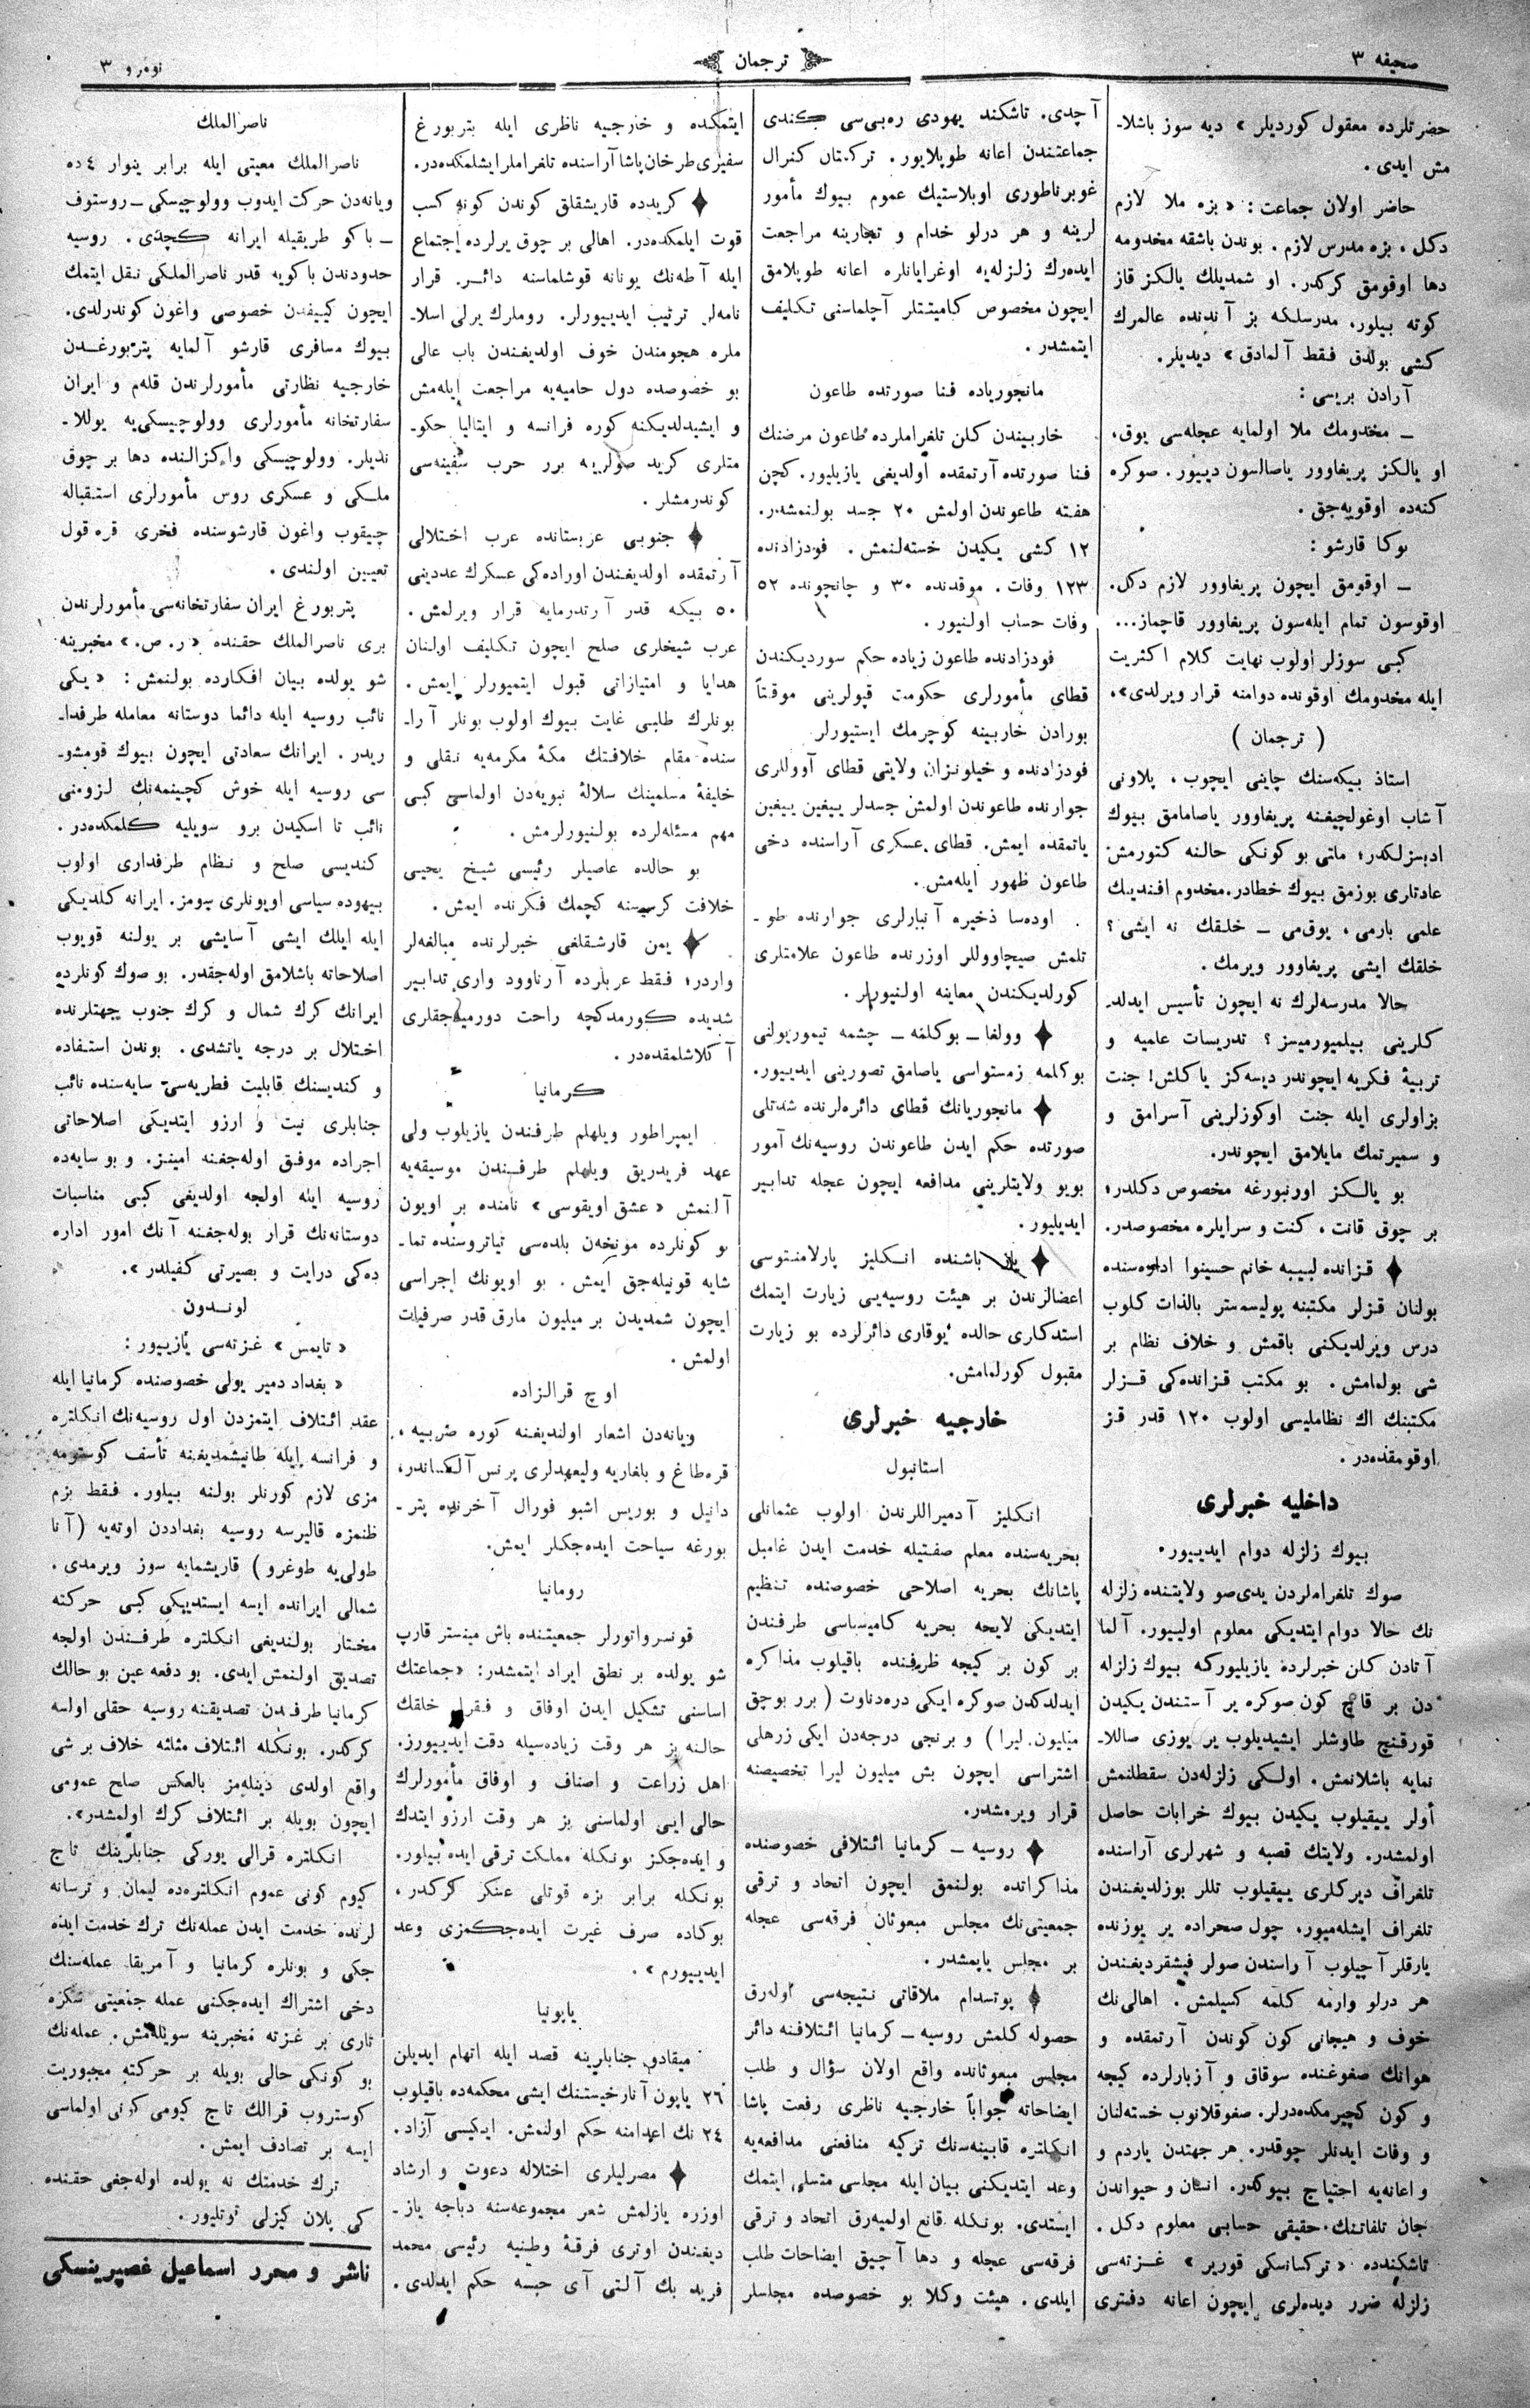 صحیفه ٣
ترجمان
نومرو ٣
حضرتلرده معقول كوردیلر » دیه سوز باشلا-
مش ایدی.
حاضر اولان جماعت: « بزه ملا لازم
دكل، بزه مدرس لازم. بوندن باشقه مخدومه
دها اوقومق كركدر. او شمدیلك یالكز قاز
كوته بیلور، مدرسلكه بز آندنده عالمرك
كشی بولدق فقط آلمادق » دیدیلر.
آرادن بریسی:
– مخدومك ملا اولمایه عجله‌سی یوق،
او یالكز پریغاوور یاصالسون دییور. صوكره
كنه‌ده اوقویه‌جق.
بوكا قارشو:
– اوقومق ایچون پریغاوور لازم دكل.
اوقوسون تمام ایله‌سون پریغاوور قاچماز...
كبی سوزلر اولوب نهایت كلام اكثریت
ایله مخدومك اوقونده دوامنه قرار ویرلدی».
( ترجمان )
استاذ بیكه‌سنك چاینی ایچوب، پلاونی
آشاب اوغولچیغنه پریغاوور یاصامامق بیوك
ادبسزلكدر؛ ملتی بو كونكی حالنه كتورمش
عادتلری بوزمق بیوك خطادر. مخدوم افندینك
علمی بارمی، یوق‌می – خلقك نه ایشی؟
خلقك ایشی پریغاوور ویرمك.
حالا مدرسه‌لرك نه ایچون تأسیس ایدلد-
كلرینی بیلمیورمیسز؟ تدریسات علمیه و
تربیهٔ فكریه ایچوندر دیسه‌كز یاكلش! جنت
بزاولری ایله جنت اوكوزلرینی آسرامق و
و سمیرتمك مایلامق ایچوندر.
بو یالكز اورنبورغه مخصوص دكلدر؛
بر چوق قانت، كنت و سرایلره مخصوصدر.
قزانده لبیبه خانم حسینوا اداره‌سنده
بولنان قزلر مكتبنه پولیسمستر بالذات كلوب
درس ویرلدیكنی باقمش و خلاف نظام بر
شی بولمامش. بو مكتب قزانده‌كی قزلر
مكتبنك اك نظاملیسی اولوب ١٢٠ قدر قز
اوقومقده‌در.
داخلیه خبرلری
بیوك زلزله دوام ایدییور.
صوك تلغراملردن یدی‌صو ولایتنده زلزله
نك حالا دوام ایتدیكی معلوم اولییور. آلما
آتادن كلن خبرلرده یازیلیوركه بیوك زلزله
دن بر قاچ كون صوكره یر آستندن یكیدن
قورقنچ طاوشلر ایشیدیلوب یر یوزی صاللا-
نمایه باشلانمش. اولكی زلزله‌دن سقطلنمش
أولر ییقیلوب یكیدن بیوك خرابات حاصل
اولمشدر. ولایتك قصبه و شهرلری آراسنده
تلغراف دیركلری ییقیلوب تللر بوزلدیغندن
تلغراف ایشله‌میور، چول صحراده یر یوزنده
یارقلر آچیلوب آراسندن صولر فیشقردیغندن
هر درلو وارمه كلمه كسیلمش. اهالی‌نك
خوف و هیجانی كون كوندن آرتمقده و
هوانك صغوغنده سوقاق و آزبارلرده كیجه
و كون كچیرمكده‌درلر. صغوقلانوب خسته‌لنان
و وفات ایدنلر چوقدر. هر جهتدن یاردم و
و اعانه‌یه احتیاج بیوكدر. انسان و حیواندن
جان تلفاتنك حقیقی حسابی معلوم دكل.
تاشكندده « تركستانسكی قوریر » غزته‌سی
زلزله ضرر دیده‌لری ایچون اعانه دفتری
آچدی. تاشكند یهودی ره‌بی‌سی كندی
جماعتندن اعانه طوپلایور. تركستان كنرال
غوبرناطوری اوبلاستیك عموم بیوك مأمور
لرینه و هر درلو خدام و تجارینه مراجعت
ایده‌رك زلزله‌یه اوغرایانلره اعانه طوپلامق
ایچون مخصوص كامیتتلر آچلماسنی تكلیف
ایتمشدر.
مانجوریاده فنا صورتده طاعون
خاربیندن كلن تلغراملرده طاعون مرضنك
فنا صورتده آرتمقده اولدیغی یازیلیور. كچن
هفته طاعوندن اولمش ٢٠ جسد بولنمشدر.
١٢ كشی یكیدن خسته‌لنمش. فودزادنده
١٢٣ وفات. موقدنده ٣٠ و چانچونده ٥٢
وفات حساب اولنیور.
فودزادنده طاعون زیاده حكم سوردیكندن
قطای مأمورلری حكومت قپولرینی موقتاً
بورادن خاربینه كوچرمك ایستیورلر
فودزادنده و خیلونزان ولایتی قطای آووللری
جوارنده طاعوندن اولمش جسدلر ییغین ییغین
یاتمقده ایمش. قطای عسكری آراسنده دخی
طاعون ظهور ایله‌مش.
اوده‌سا ذخیره آنبارلری جوارنده طو-
تلمش صیچاوو‌للر اوزرنده طاعون علامتلری
كورلدیكندن معاینه اولنیورلر.
وولغا – بوكلمه – چشمه تیموریولنی
بوكلمه زمستواسی یاصامق تصورینی ایدییور.
مانجوریانك قطای دائره‌لرنده شدتلی
صورتده حكم ایدن طاعوندن روسیه‌نك آمور
بویو ولایتلرینی مدافعه ایچون عجله تدابیر
ایدیلیور.
یاز باشنده انكلیز پارلامنتوسی
اعضالرندن بر هیئت روسیه‌یی زیارت ایتمك
استدكاری حالده یوقاری دائرلرده بو زیارت
مقبول كورلمامش.
خارجیه خبرلری
استانبول
انكلیز آدمیراللرندن اولوب عثمانلی
بحریه‌سنده معلم صفتیله خدمت ایدن غامبل
پاشانك بحریه اصلاحی خصوصنده تنظیم
ایتدیكی لایحه بحریه كامیساسی طرفندن
بر كون بر كیچه ظرفنده باقیلوب مذاكره
ایدلدكدن صوكره ایكی دره‌دناوت ( برر بوچق
میلیون لیرا ) و برنجی درجه‌دن ایكی زرهلی
اشتراسی ایچون بش میلیون لیرا تخصیصنه
قرار ویرمشدر.
روسیه – كرمانیا ائتلافی خصوصنده
مذاكراتده بولنمق ایچون اتحاد و ترقی
جمعیتی‌نك مجلس مبعوثان فرقه‌سی عجله
بر مجلس یاپمشدر.
پوتسدام ملاقاتی نتیجه‌سی اوله‌رق
حصوله كلمش روسیه – كرمانیا ائتلافنه دائر
مجلس مبعوثانده واقع اولان سؤال و طلب
ایضاحاته جواباً خارجیه ناظری رفعت پاشا
انكلتره قابینه‌سنك تركیه منافعنی مدافعه‌یه
وعد ایتدیكنی بیان ایله مجلسی متسلی ایتمك
ایستدی. بونكله قانع اولمیه‌رق اتحاد و ترقی
فرقه‌سی عجله و دها آچیق ایضاحات طلب
ایلدی. هیئت وكلا بو خصوصده مجلسلر
ایتمكده و خارجیه ناظری ایله پتربورغ
سفیری طرخان پاشا آراسنده تلغراملر ایشلمكده‌در.
كریدده قاریشقلق كوندن كونه كسب
قوت ایلمكده‌در. اهالی بر چوق یرلرده اجتماع
ایله آطه‌نك یونانه قوشلماسنه دائر قرار
نامه‌لر ترتیب ایدییورلر. روملرك یرلی اسلا-
ملره هجومندن خوف اولدیغندن باب عالی
بو خصوصده دول حامیه‌یه مراجعت ایله‌مش
و ایشیدلدیكنه كوره فرانسه و ایتالیا حكو-
متلری كرید صولرینه برر حرب سفینه‌سی
كوندرمشلر.
جنوبی عربستانده عرب اختلالی
آرتمقده اولدیغندن اوراده‌كی عسكرك عددینی
٥٠ بیكه قدر آرتدرمایه قرار ویرلمش.
عرب شیخلری صلح ایچون تكلیف اولنان
هدایا و امتیازاتی قبول ایتمیورلر ایمش.
بونلرك طلبی غایت بیوك اولوب بونلر آرا-
سنده مقام خلافتك مكهٔ مكرمه‌یه نقلی و
خلیفهٔ مسلمینك سلالهٔ نبویه‌دن اولماسی كبی
مهم مسئله‌لرده بولنیورلرمش.
بو حالده عاصیلر رئیسی شیخ یحیی
خلافت كرسیسنه كچمك فكرنده ایمش.
یمن قارشقلغی خبرلرنده مبالغه‌لر
واردر؛ فقط عربلرده آرناوود واری تدابیر
شدیده كورمدكچه راحت دورمیه‌جقلری
آكلاشلمقده‌در.
كرمانیا
ایمپراطور ویلهلم طرفندن یازیلوب ولی
عهد فریدریق ویلهلم طرفندن موسیقه‌یه
آلنمش « عشق اویقوسی » نامنده بر اویون
بو كونلرده مونیخن بلده‌سی تیاتروسنده تما-
شایه قونیله‌جق ایمش. بو اویونك اجراسی
ایچون شمدیدن بر میلیون مارق قدر صرفیات
اولمش.
اوچ قرالزاده
ویانه‌دن اشعار اولندیغنه كوره صربیه،
قره‌طاغ و بلغاریه ولیعهدلری پرنس آلكساندر،
دانیل و بوریس اشبو فورال آخرنده پتر-
بورغه سیاحت ایده‌جكلر ایمش.
رومانیا
قونسرواتورلر جمعیتنده باش مینستر قارپ
شو یولده بر نطق ایراد ایتمشدر: « جماعتك
اساسنی تشكیل ایدن اوفاق و فقرا خلقك
حالنه بز هر وقت زیاده‌سیله دقت ایدییورز.
اهل زراعت و اصناف و اوفاق مأمورلرك
حالی ایی اولماسنی بز هر وقت ارزو ایتدك
و ایده‌جكز بونكله مملكت ترقی ایده بیلور.
بونكله برابر بزه قوتلی عسكر كركدر،
بوكاده صرف غیرت ایده‌جكمزی وعد
ایدییورم ».
یاپونیا
میقادو جنابلرینه قصد ایله اتهام ایدیلن
٢٦ یاپون آنارخیستنك ایشی محكمه‌ده باقیلوب
٢٤ نك اعدامنه حكم اولنمش. ایكیسی آزاد.
مصرلیلری اختلاله دعوت و ارشاد
اوزره یازلمش شعر مجموعه‌سنه دباجه یاز-
دیغندن اوتری فرقهٔ وطنیه رئیسی محمد
فرید بك آلتی آی حبسه حكم ایدلدی.
ناصر الملك
ناصر الملك معیتی ایله برابر ینوار ٤ ده
ویانه‌دن حركت ایدوب وولوچیسكی – روستوف
– باكو طریقیله ایرانه كچدی. روسیه
حدودندن باكویه قدر ناصر الملكی نقل ایتمك
ایچون كییفدن خصوصی واغون كوندرلدی.
بیوك مسافری قارشو آلمایه پتربورغدن
خارجیه نظارتی مأمورلرندن قله‌م و ایران
سفارتخانه مأمورلری وولوچیسكی‌یه یوللا-
ندیلر. وولوچیسكی واكزالنده دها بر چوق
ملكی و عسكری روس مأمورلری استقباله
چیقوب واغون قارشوسنده فخری قره قول
تعیین اولندی.
پتربورغ ایران سفارتخانه‌سی مأمورلرندن
بری ناصر الملك حقنده « ر. ص. » مخبرینه
شو یولده بیان افكارده بولنمش: « یكی
نائب روسیه ایله دائما دوستانه معامله طرفدا-
ریدر. ایرانك سعادتی ایچون بیوك قومشو-
سی روسیه ایله خوش كچینمه‌نك لزومنی
نائب تا اسكیدن برو سویلیه كلمكده‌در.
كندیسی صلح و نظام طرفداری اولوب
بیهوده سیاسی اویونلری سومز. ایرانه كلدیكی
ایله ایلك ایشی آسایشی بر یولنه قویوب
اصلاحاته باشلامق اوله‌جقدر. بو صوك كونلرده
ایرانك كرك شمال و كرك جنوب جهتلرنده
اختلال بر درجه یاتشدی. بوندن استفاده
و كندیسنك قابلیت فطریه‌سی سایه‌سنده نائب
جنابلری نیت و ارزو ایتدیكی اصلاحاتی
اجراده موفق اوله‌جغنه امینز. و بو سایه‌ده
روسیه ایله اولجه اولدیغی كبی مناسبات
دوستانه‌نك قرار بوله‌جغنه آنك امور اداره
ده‌كی درایت و بصیرتی كفیلدر ».
لوندون
« تایمس » غزته‌سی یازییور:
« بغداد دمیر یولی خصوصنده كرمانیا ایله
عقد ائتلاف ایتمزدن اول روسیه‌نك انكلتره
و فرانسه ایله طانیشمدیغنه تأسف كوسترمه
مزی لازم كورنلر بولنه بیلور. فقط بزم
ظنمزه قالیرسه روسیه بغداددن اوته‌یه (آنا
طولی‌یه طوغرو) قاریشمایه سوز ویرمدی.
شمالی ایرانده ایسه ایستدیكی كبی حركته
مختار بولندیغی انكلتره طرفندن اولجه
تصدیق اولنمش ایدی. بو دفعه عین بو حالك
كرمانیا طرفندن تصدیقنه روسیه حقلی اولسه
كركدر. بونكله ائتلاف مثلثه خلاف بر شی
واقع اولدی دینله‌مز بالعكس صلح عمومی
ایچون بویله بر ائتلاف كرك اولمشدر».
انكلتره قرالی یوركی جنابلرینك تاج
كیوم كونی عموم انكلتره‌ده لیمان و ترسانه
لرنده خدمت ایدن عمله‌نك ترك خدمت ایده
جكی و بونلره كرمانیا و آمریقا عمله‌سنك
دخی اشتراك ایده‌جكنی عمله جمعیتی سكره
تاری بر غزته مخبرینه سویله‌مش. عمله‌نك
بو كونكی حالی بویله بر حركته مجبوریت
كوستروب قرالك تاج كیومی كونی اولماسی
ایسه بر تصادف ایمش.
ترك خدمتك نه یولده اوله‌جغی حقنده
كی پلان كیزلی توتلیور.
ناشر و محرر اسماعیل غصپرینسكی